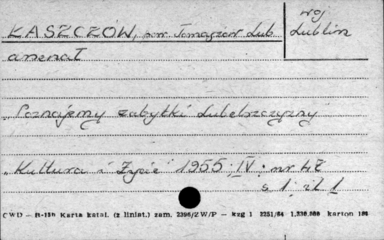 KASZCZÓW, pow. Tomaszów Lub.
woj
Lublin
arsenał
„Poznajemy zabytki Lubelszczyzny
„Kultura i Życie" 1955. IV. nr 47
s 1. zł 1
CWD — B-15b Karta katal. (z linist.) zam. 2396/ZWP — kzg 1 2251/64 1,330,000 karton 106